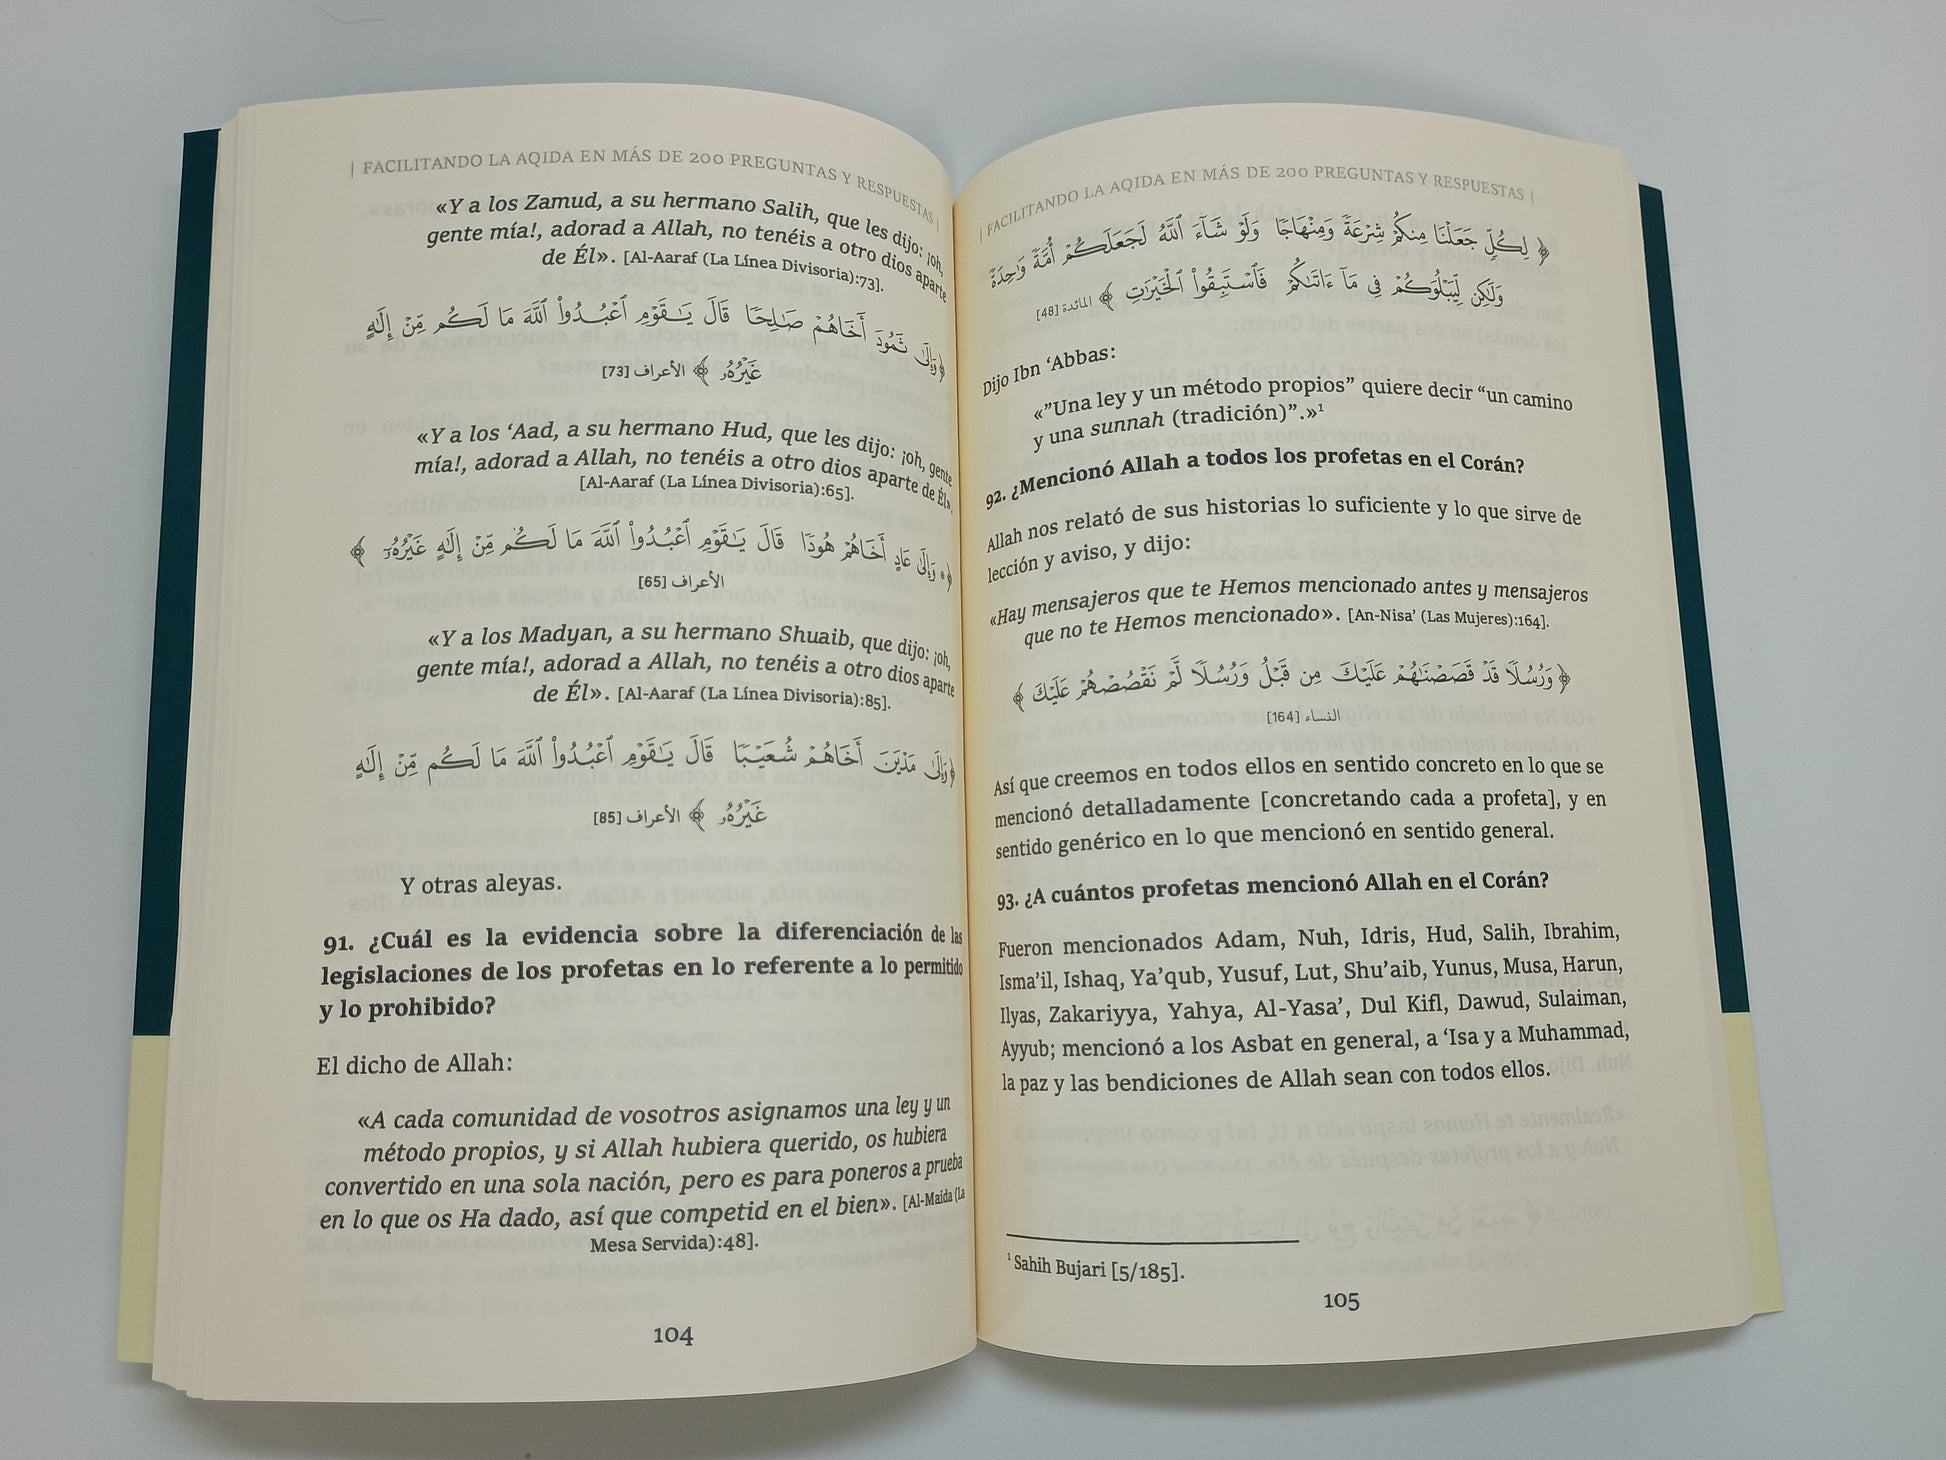 | FACILITANDO LA AQIDA EN MÁS DE 200 PREGUNTAS Y RESPUESTAS |
«Y a los Zamud, a su hermano Salih, que les dijo: ¡oh,
gente mía!, adorad a Allah, no tenéis a otro dios aparte
de Él». [Al-Aaraf (La Línea Divisoria):73].
﴿وَإِلَىٰ ثَمُودَ أَخَاهُمْ صَٰلِحًا قَالَ يَٰقَوْمِ ٱعْبُدُوا۟ ٱللَّهَ مَا لَكُم مِّنْ إِلَٰهٍ
غَيْرُهُۥ ﴾ الأعراف [73]
«Y a los ‘Aad, a su hermano Hud, que les dijo: ¡oh, gente
mía!, adorad a Allah, no tenéis a otro dios aparte de Él».
[Al-Aaraf (La Línea Divisoria):65].
﴿۞ وَإِلَىٰ عَادٍ أَخَاهُمْ هُودًا قَالَ يَٰقَوْمِ ٱعْبُدُوا۟ ٱللَّهَ مَا لَكُم مِّنْ إِلَٰهٍ غَيْرُهُۥٓ ﴾
الأعراف [65]
«Y a los Madyan, a su hermano Shuaib, que dijo: ¡oh,
gente mía!, adorad a Allah, no tenéis a otro dios aparte
de Él». [Al-Aaraf (La Línea Divisoria):85].
﴿وَإِلَىٰ مَدْيَنَ أَخَاهُمْ شُعَيْبًا قَالَ يَٰقَوْمِ ٱعْبُدُوا۟ ٱللَّهَ مَا لَكُم مِّنْ إِلَٰهٍ
غَيْرُهُۥ ﴾ الأعراف [85]
Y otras aleyas.
91. ¿Cuál es la evidencia sobre la diferenciación de las
legislaciones de los profetas en lo referente a lo permitido
y lo prohibido?
El dicho de Allah:
«A cada comunidad de vosotros asignamos una ley y un
método propios, y si Allah hubiera querido, os hubiera
convertido en una sola nación, pero es para poneros a prueba
en lo que os Ha dado, así que competid en el bien». [Al-Maida (La
Mesa Servida):48].
104
| FACILITANDO LA AQIDA EN MÁS DE 200 PREGUNTAS Y RESPUESTAS |
﴿ لِكُلٍّ جَعَلْنَا مِنكُمْ شِرْعَةً وَمِنْهَاجًا وَلَوْ شَآءَ ٱللَّهُ لَجَعَلَكُمْ أُمَّةً وَٰحِدَةً
وَلَٰكِن لِّيَبْلُوَكُمْ فِى مَآ ءَاتَىٰكُمْ فَٱسْتَبِقُوا۟ ٱلْخَيْرَٰتِ ﴾ المائدة [48]
Dijo Ibn ‘Abbas:
«”Una ley y un método propios” quiere decir “un camino
y una sunnah (tradición)”.»¹
92. ¿Mencionó Allah a todos los profetas en el Corán?
Allah nos relató de sus historias lo suficiente y lo que sirve de
lección y aviso, y dijo:
«Hay mensajeros que te Hemos mencionado antes y mensajeros
que no te Hemos mencionado». [An-Nisa’ (Las Mujeres):164].
﴿وَرُسُلًا قَدْ قَصَصْنَٰهُمْ عَلَيْكَ مِن قَبْلُ وَرُسُلًا لَّمْ نَقْصُصْهُمْ عَلَيْكَ ﴾
النساء [164]
Así que creemos en todos ellos en sentido concreto en lo que se
mencionó detalladamente [concretando cada a profeta], y en
sentido genérico en lo que mencionó en sentido general.
93. ¿A cuántos profetas mencionó Allah en el Corán?
Fueron mencionados Adam, Nuh, Idris, Hud, Salih, Ibrahim,
Isma’il, Ishaq, Ya’qub, Yusuf, Lut, Shu’aib, Yunus, Musa, Harun,
Ilyas, Zakariyya, Yahya, Al-Yasa’, Dul Kifl, Dawud, Sulaiman,
Ayyub; mencionó a los Asbat en general, a ‘Isa y a Muhammad,
la paz y las bendiciones de Allah sean con todos ellos.
¹ Sahih Bujari [5/185].
105